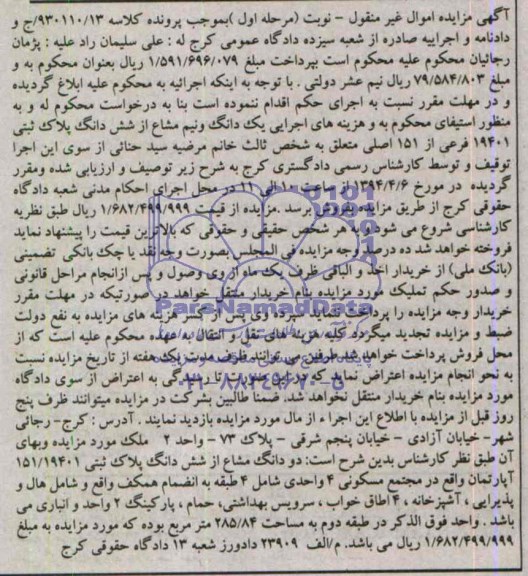 آگهی مزایده اموال غیر منقول - نوبت (مرحله اول )بموجب پرونده کلاسه ۹۳۰۱۱۰/۱۳/ج و
دادنامه و اجرایيه صادره از شعبه سیزده دادگاه عمومی کرج له : علی سلیمان راد علیه : پژمان
رجائیان محکوم علیه محکوم است بپرداخت مبلغ ۱/۵۹۱/۶۹۶/۰۷۹ ریال بعنوان محکوم به و
مبلغ ۷۹/۵۸۴/۸۰۳ ریال نیم عشر دولتی . با توجه به اینکه اجرائیه به محکوم علیه ابلاغ گردیده
و در مهلت مقرر نسبت به اجرای حکم اقدام ننموده است بنا به درخواست محکوم له و به
منظور استیفای محکوم به و هزینه های اجرایی یک دانگ ونیم مشاع از شش دانگ پلاک ثبتی
۱۹۴۰۱ فرعی از ۱۵۱ اصلی متعلق به شخص ثالث خانم مرضیه سید حنائی از سوی این اجرا
توقیف و توسط کارشناس رسمی دادگستری کرج به شرح زیر توصیف و ارزیابی شده ومقرر
گردیده در مورخ ۱۳۹۴/۴/۶ از ساعت ۱۰ الی ۱۱ در محل اجرای احکام مدنی شعبه دادگاه
حقوقی کرج از طریق مزایده بفروش برسد .مزایده از قیمت ۱/۶۸۲/۴۹۹/۹۹۹ ریال طبق نظریه
کارشناسی شروع می شود و به هر شخص حقیقی و حقوقی که بالاترین قیمت را پیشنهاد نماید
فروخته خواهد شد ده درصد وجه مزایده فی المجلس بصورت وجه نقد یا چک بانکی تضمینی
(بانک ملی) از خریدار اخذ و الباقی ظرف یک ماه از وی وصول و پس ازانجام مراحل قانونی
و صدور حکم تملیک مورد مزایده بنام خریدار منتقل خواهد در صورتیکه در مهلت مقرر
خریدار وجه مزایده را پرداخت ننماید سپرده وی پس از کسر هزینه های مزایده به نفع دولت
ضبط و مزایده تجدید میگردد کلیه هزینه های نقل و انتقال به عهده محکوم علیه است که از
محل فروش پرداخت خواهد شد طرفین می توانند ظرف مدت یک هفته از تاریخ مزایده نسبت
به نحو انجام مزایده اعتراض نمایند که در این صورت تا رسیدگی به اعتراض از سوی دادگاه
مورد مزایده بنام خریدار منتقل نخواهد شد. ضمنا طالبین بشرکت در مزایده میتوانند ظرف پنج
روز قبل از مزایده با اطلاع این اجرا ء از مال مورد مزایده بازدید نمایند . آدرس : کرج- رجائی
شهر- خیابان آزادی - خیابان پنجم شرقی - پلاک ۷۳ - واحد ۲ ملک مورد مزایده وبهای
آن طبق نظر کارشناس بدین شرح است: دو دانگ مشاع از شش دانگ پلاک ثبتی ۱۵۱/۱۹۴۰۱
آپارتمان واقع در مجتمع مسکونی ۴ واحدی شامل ۴ طبقه به انضمام همکف واقع و شامل هال و
پذیرایی ، آشپزخانه ، ۴ اطاق خواب ، سرویس بهداشتی، حمام ، پارکینگ ۲ واحد و انباری می
باشد . واحد فوق الذکر در طبقه دوم به مساحت ۲۸۵/۸۴ متر مربع بوده که مورد مزایده به مبلغ
۱/۶۸۲/۴۹۹/۹۹۹ ریال می باشد. م/الف ۲۳۹۰۹ دادورز شعبه ۱۳ دادگاه حقوقی کرج
ParsNamadData
۰۲۱-۸۸۳۴۹۶۷۰-۵